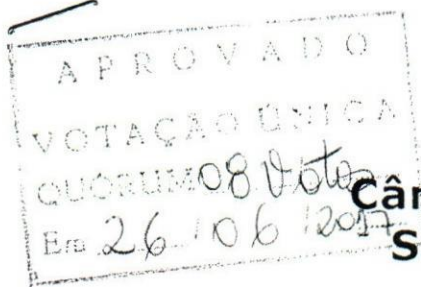 APROVADO
VOTAÇÃO ÚNICA
QUÓRUM 08 Votos
Em 26/06/2017
Câr
S